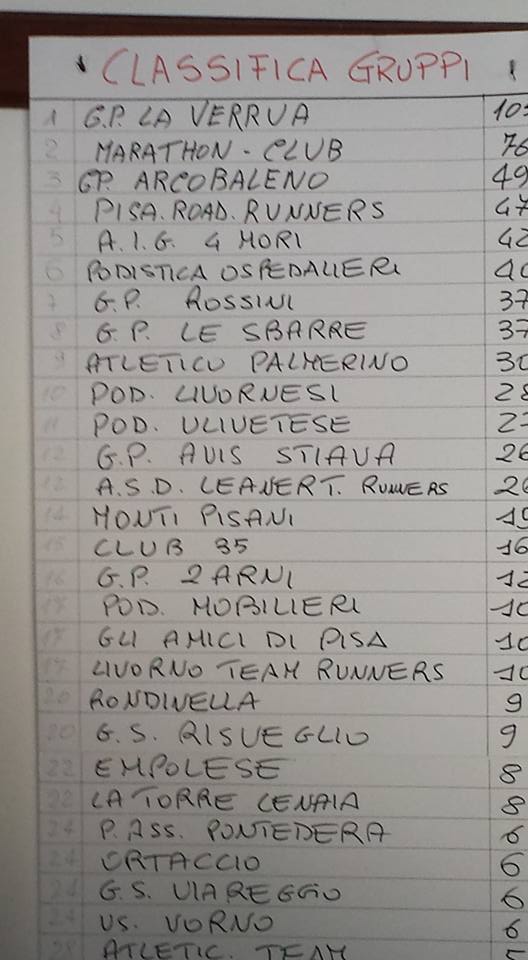 CLASSIFICA GRUPPI
1 G.P. LA VERRUA
2 MARATHON - CLUB 76
3 GP. ARCOBALENO 49
4 PISA. ROAD. RUNNERS 47
5 A.I.G. 4 MORI 42
6 PODISTICA OSPEDALIERI 40
7 G.P. ROSSINI 37
8 G.P. LE SBARRE 37
9 ATLETICO PALMERINO 30
10 POD. LIVORNESI 28
11 POD. ULIVETESE
12 G.P. AVIS STIAVA 26
13 A.S.D. LEANERT. RUNNERS
14 MONTI PISANI
15 CLUB 35 16
16 G.P. 2 ARNI 12
17 POD. MOBILIERI 10
17 GLI AMICI DI PISA 10
17 LIVORNO TEAM RUNNERS 10
20 RONDINELLA 9
20 G.S. RISVEGLIO 9
22 EMPOLESE 8
22 LA TORRE CENAIA 8
24 P. ASS. PONTEDERA 6
24 ORTACCIO 6
24 G.S. VIAREGGIO 6
24 US. VORNO 6
28 ATLETIC. TEAM